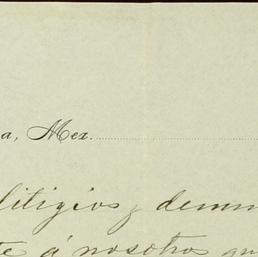 a, Mex.
litigios y demm
te á nosotros qu